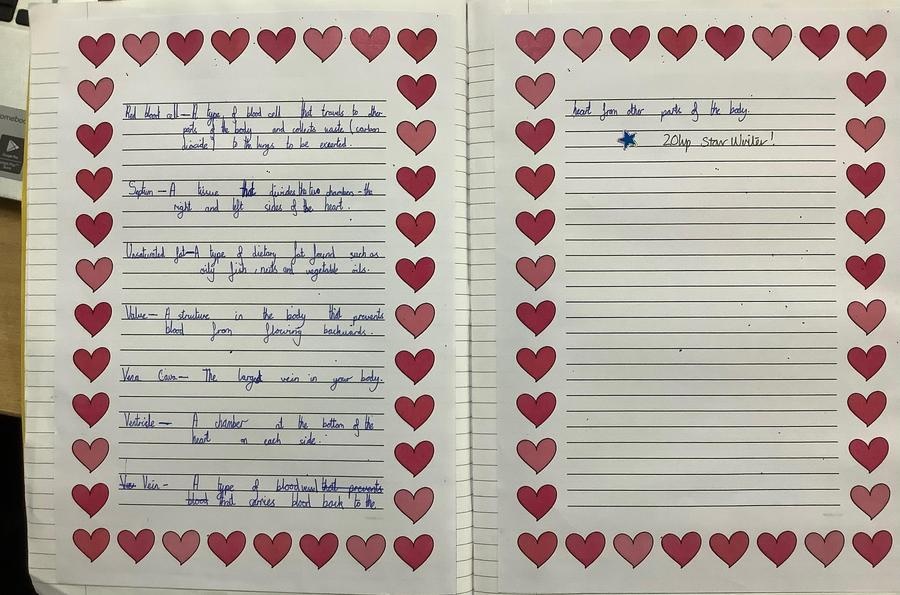 Red blood cell — A type of blood cell that travels to other
parts of the body and collects waste (carbon
dioxide) to the lungs to be
Septum — A tissue that divides the two chambers - the
right and left sides of the heart.
Unsaturated fat — A type of dietary fat found such as
oily fish, nuts and vegetable oils.
Valve — A structure in the body that prevents
blood from flowing backwards.
Vena Cava — The largest vein in your body.
Ventricle — A chamber at the bottom of the
heart on each side.
Vein - A type of blood vessel that prevents
blood that carries blood back to the
heart from other parts of the body.
Star Writer!